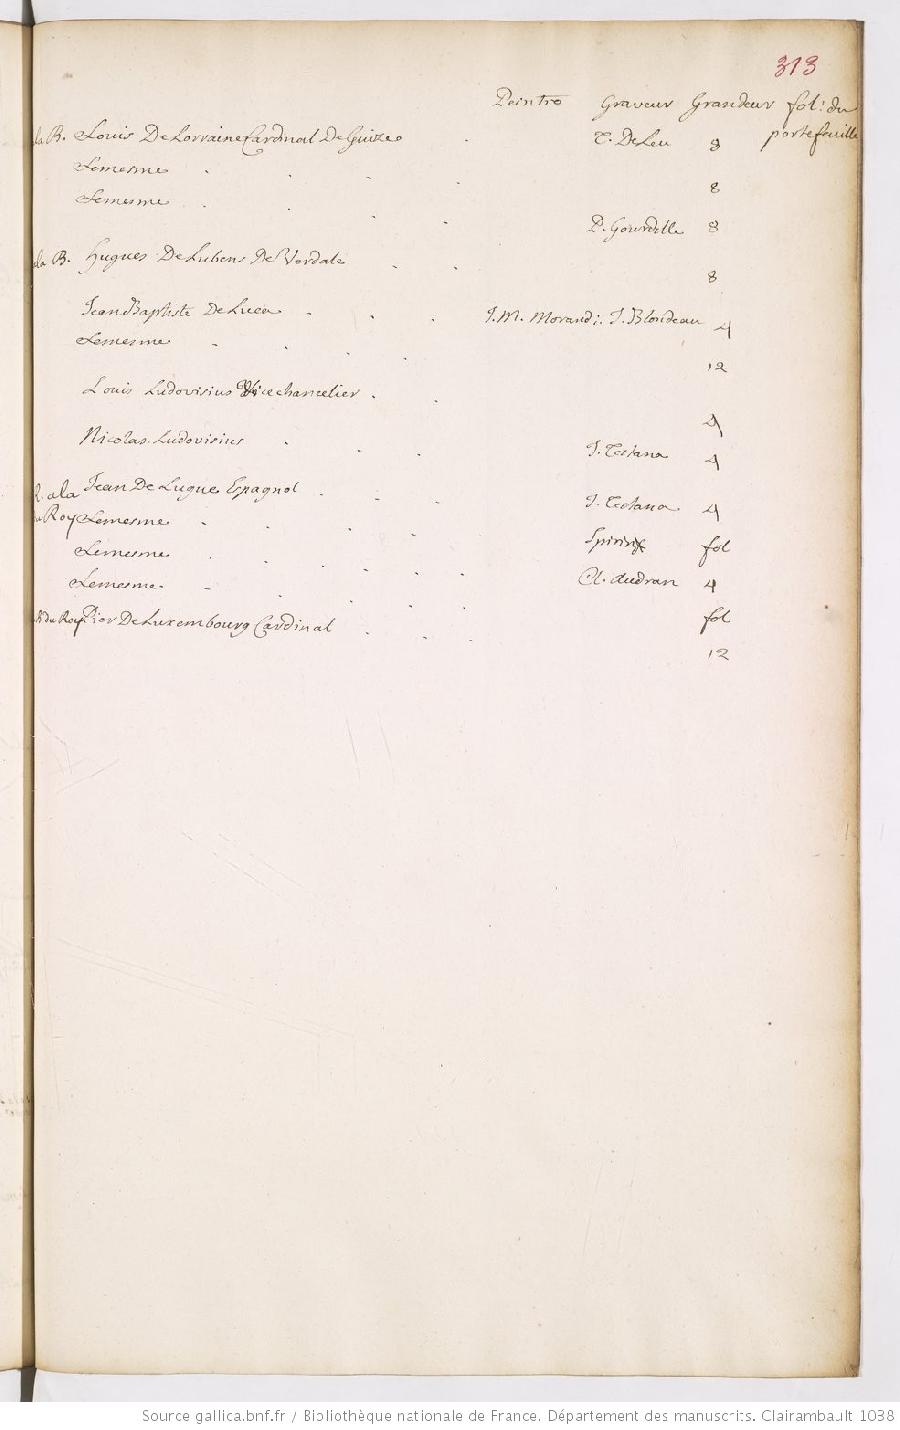 313
Peintre Graveur Grandeur fol: du
portefeuille
la B. Louis De Lorraine Cardinal De Guize T. De Leu 8
Lemesme 8
Lemesme P. Gourdelle 8
ala B. Hugues De Lubens De Verdale 8
Jean Baptiste De Luca J. M. Morandi. J. Blondeau 4
Lemesme 12
Louis Ludovisius Vicechancelier 4
Nicolas Ludovisius J. Testana 4
R. ala Jean De Lugue Espagnol J. Testana 4
du Roy Lemesme Spirinx fol
Lemesme Cl. Audran 4
Lemesme fol
R. du Roy Pier De Luxembourg Cardinal 12
Source gallica.bnf.fr / Bibliothèque nationale de France. Département des manuscrits. Clairambault 1038